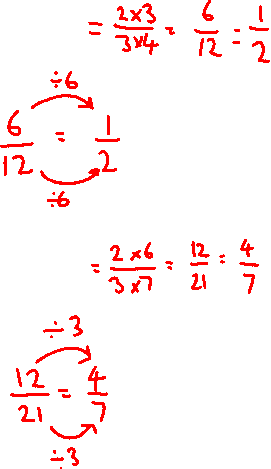 = 2×3/3×4 = 6/12 = 1/2
÷6
6/12 = 1/2
÷6
= 2×6/3×7 = 12/21 = 4/7
÷3
12/21 = 4/7
÷3